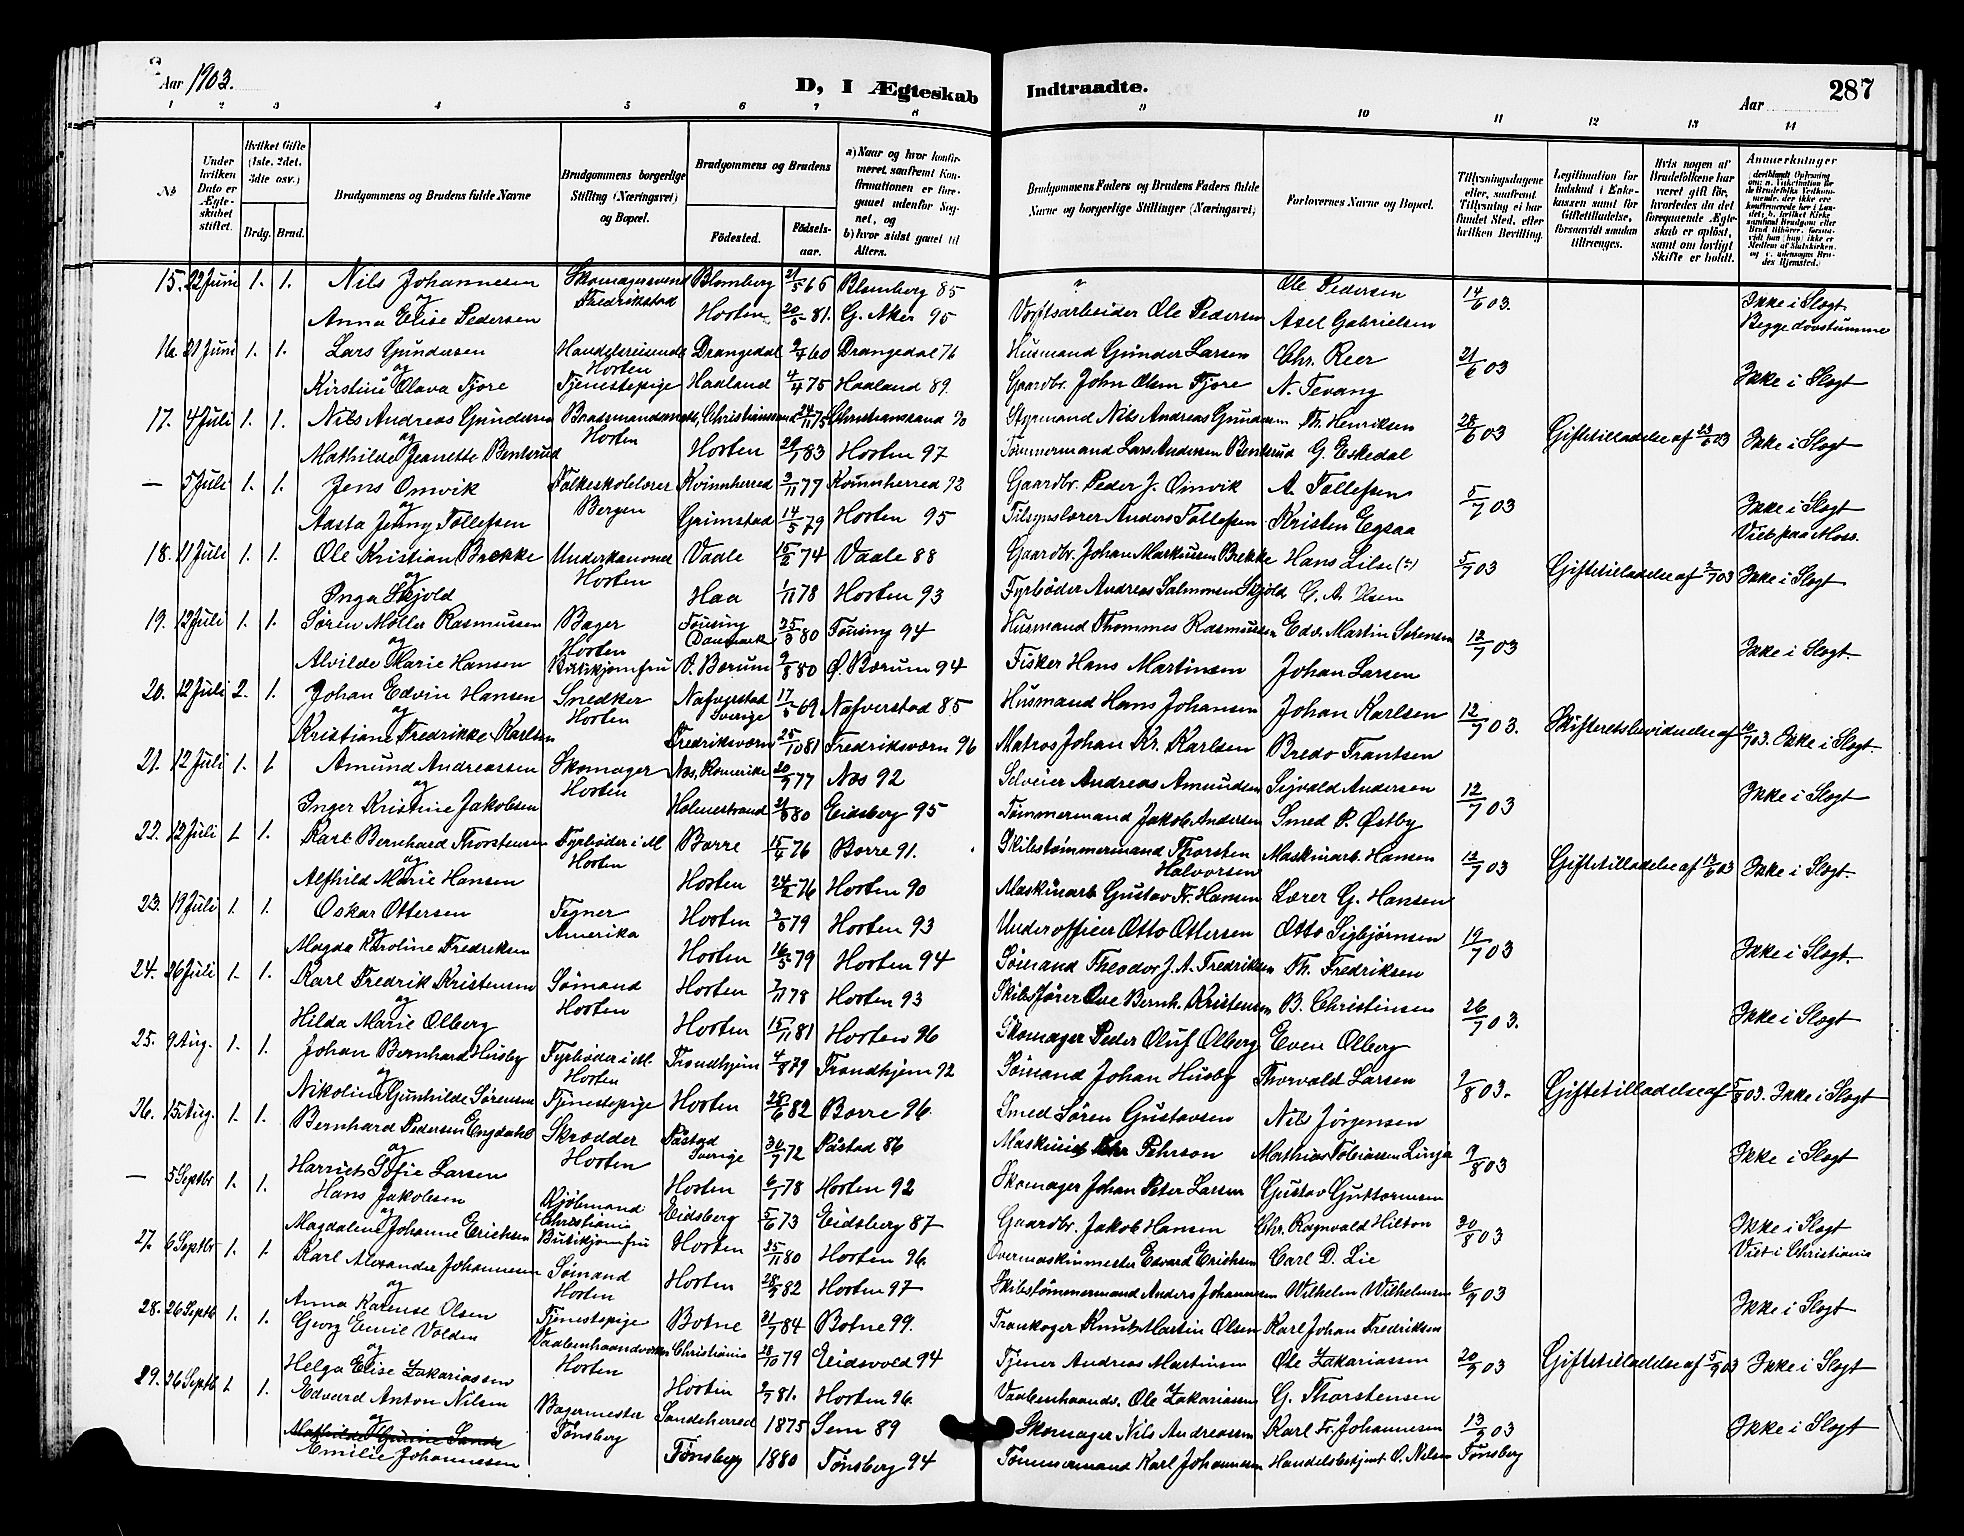 Aar 1903.
D, I Ægteskab Indtraadte.
Aar
287
1 2 3 4 5 6 7 8 9 10 11 12 13 14
No
Under hvilken Dato er Ægteskabet stiftet.
Hvilket Gifte (1ste, 2det, 3die osv.)
Brdg. Brud.
Brudgommens og Brudens fulde Navne
Brudgommens borgerlige Stilling (Næringsvei) og Bopæl.
Brudgommens og Brudens
Fødested. Fødselsaar.
a) Naar og hvor konfirmeret, saafremt Konfirmationen er foregaaet udenfor Sognet, og
b) hvor sidst gaaet til Alters.
Brudgommens Faders og Brudens Faders fulde Navne og borgerlige Stillinger (Næringsvei)
Forlovernes Navne og Bopæl.
Tillysningsdagene eller, saafremt Tillysning ei har fundet Sted, efter hvilken Bevilling.
Legitimation for Indskud i Enkekassen samt for Giftetilladelse, forsaavidt saadan tiltrænges.
Hvis nogen af Brudefolkene har været gift før, hvorledes da det foregaaende Ægteskab er opløst, samt om lovligt Skifte er holdt.
Anmerkninger
15. 22 Juni 1. 1. Nils Johannesen Skomagersvend Fredrikstad Blomberg 21/5 65 Blomberg 85 " Ole Pedersen 14/6 03. Ikke i Slegt Begge døvstumme
og Anna Elise Pedersen Horten 20/5 81. G. Aker 95 Værftsarbeider Ole Pedersen Axel Gabrielsen
16. 21 Juni 1. 1. Lars Gundersen Handelsreisende Horten Drangedal 9/7 60 Drangedal 76 Husmand Gunder Larsen Chr. Reer 21/6 03 Ikke i Slegt
og Kirstine Olava Fjore Tjenestepige Haaland 4/4 75 Haaland 89. Gaardbr. John Olsen Fjore N. Tevang
17. 4 Juli 1. 1. Nils Andreas Gundersen Horten 24/11 75 Christianssand 90 Styrmand Nils Andreas Gundersen Th. Henriksen 28/6 03 Giftetilladelse af 23/6 03 Ikke i Slegt
og Mathilde Jeanette Benterud Horten 29/1 83 Horten 97 Tømmermand Lars Andersen Benterud G. Eskedal
— 5 Juli 1. 1. Jens Omvik Folkeskolelærer Bergen Kvinnherred 3/11 77 Kvinnherred 92 Gaardbr. Peder J. Omvik A. Tollefsen 5/7 03 Ikke i Slegt Viet paa Moss.
og Aasta Jenny Tollefsen Grimstad 14/5 79 Horten 95 Tilsynslærer Anders Tollefsen Kristen Egsaa
18. 11 Juli 1. 1. Ole Kristian Brekke Underkanoner Horten Vaale 15/2 74 Vaale 88 Gaardbr. Johan Markussen Brekke Hans Lilse (?) 5/7 03 Giftetilladelse af 2/7 03 Ikke i Slegt
og Inga Skjold Haa 1/11 78 Horten 93 Fyrbøder Andreas Salmonsen Skjold C. A. Olsen
19. 12 Juli 1. 1. Søren Møller Rasmussen Bager Horten Tousing Danmark 25/3 80 Tousing 94 Husmand Thommes Rasmussen Edv. Martin Sørensen 12/7 03 Ikke i Slegt.
og Alvilde Marie Hansen Butikjomfru Ø. Bærum 9/8 80 Ø. Bærum 94 Fisker Hans Martinsen Johan Larsen
20. 12 Juli 2. 1. Johan Edvin Hansen Snedker Horten Nafverstad Sverige 17/5 69 Nafverstad 85. Husmand Hans Johansen Johan Karlsen 12/7 03. Skifteretsbevidnelse af 10/7 03. Ikke i Slegt.
og Kristiane Fredrikke Karlsen Fredriksværn 25/10 81 Fredriksværn 96 Matros Johan Kr. Karlsen Bredo Frantsen
21. 12 Juli 1. 1 Amund Andreassen Skomager Horten Næs, Romerike 20/9 77 Næs 92 Selveier Andreas Amundsen Sigvald Andersen 12/7 03 Ikke i Slegt
og Inger Kristine Jakobsen Holmestrand 21/8 80 Eidsberg 95 Tømmermand Jakob Andersen Smed P. Østby
22. 12 Juli 1 1. Karl Bernhard Thorstensen Fyrbøder i M Horten Borre 15/4 76 Borre 91. Skibstømmermand Thorsten Halvorsen Maskinarb. Hansen 12/7 03 Giftetilladelse af 12/6 03 Ikke i Slegt
og Alfhild Marie Hansen Horten 24/2 76 Horten 90 Maskinarb Gustav Fr. Hansen Lærer G. Hansen
23. 19 Juli 1. 1. Oskar Ottersen Tegner Amerika Horten 2/8 79 Horten 93 Underofficer Otto Ottersen Otto Sigbjørnsen 19/7 03 Ikke i Slegt.
og Magda Karoline Fredriksen Horten 16/5 79 Horten 94 Sømand Theodor J. A. Fredriksen Th. Fredriksen
24. 26 Juli 1. 1. Karl Fredrik Kristensen Sømand Horten Horten 7/11 78 Horten 93 Skibsfører Ove Bernh. Kristensen B. Christensen 26/7 03. Ikke i Slegt
og Hilda Marie Olberg Horten 15/11 81 Horten 96 Skomager Peder Oluf Olberg Even Olberg
25. 9 Aug. 1. 1. Johan Bernhard Husby Fyrbøder i M. Horten Trondhjem 4/8 79 Trondhjem 92 Sømand Johan Husby Thorvald Larsen 2/8 03. Giftetilladelse af 5/8 03. Ikke i Slegt
og Nikoline Gunhilde Sørensen Tjenestepige Horten 28/6 82 Borre 96. Smed Søren Gustavsen Nils Jørgensen
26. 15 Aug. 1. 1. Bernhard Pedersen Engdahl Skrædder Horten Påstad Sverige 30/7 72 Påstad 86 Pehrson Mathias Tobiassen Linja 9/8 03 Ikke i Slegt
og Harriet Sofie Larsen Horten 6/1 78 Horten 92 Skomager Johan Peter Larsen Gustav Guttormsen
— 5 Septbr 1. 1. Hans Jakobsen Kjøbmand Christiania Eidsberg 5/6 73 Eidsberg 87 Gaardbr. Jakob Hansen Chr. Ragnvald Hilton 30/8 03 Ikke i Slegt Viet i Christiania
og Magdalene Johanne Erichsen Butikjomfru Horten 25/11 80 Horten 96. Overmaskinmester Edvard Erichsen Carl D. Lie
27. 6 Septbr 1. 1. Karl Alexander Johannesen Sømand Horten Horten 28/9 82 Horten 97 Skibstømmermand Anders Johannesen Wilhelm Wilhelmsen 6/9 03 Ikke i Slegt
og Anna Karense Olsen Tjenestepige Botne 31/7 84 Botne 99. Trankoger Knut Martin Olsen Karl Johan Fredriksen
28. 26 Septb. 1. 1. Georg Emil Volden Vaabenhaandverker Horten Christiania 28/10 79 Eidsvold 94 Tjener Andreas Martinsen Ole Zakariassen 20/9 03 Giftetilladelse af 5/9 03 Ikke i Slegt
og Helga Elise Zakariassen Horten 9/7 81. Horten 96. Vaabenhaandv. Ole Zakariassen G. Thorstensen
29. 26 Septb 1 1. Edvard Anton Nilsen Bagermester Tønsberg Sandeherred 1875 Sem 89 Skomager Nils Andreassen Karl Fr. Johannesen 13/9 03 Tønsberg Ikke i Slegt
og Emilie Johannesen Tønsberg 1880 Tønsberg 94 Tømmermand Karl Johannesen Handelsbetjent O. Nilsen